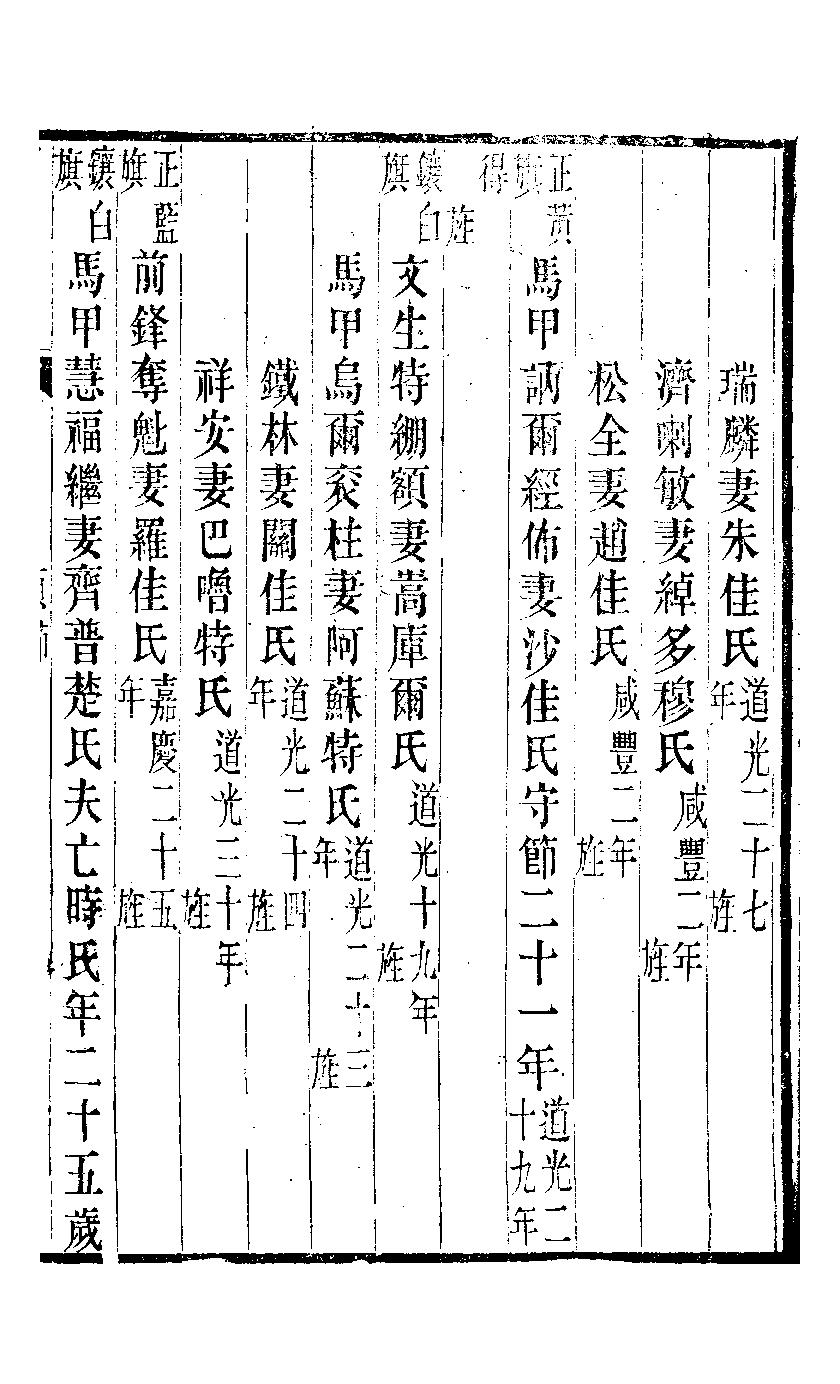 瑞麟妻朱佳氏道光二十七年旌
濟喇敏妻綽多穆氏咸豐二年旌
松全妻趙佳氏咸豐二年旌
正黃旗馬甲訥爾經佈妻沙佳氏守節二十一年道光二十九年
得旌
鑲白旗文生特綳額妻嵩庫爾氏道光十九年旌
馬甲烏爾袞柱妻阿蘇特氏道光二十三年旌
鐵林妻關佳氏道光二十四年旌
祥安妻巴嚕特氏道光三十年旌
正藍旗前鋒奪魁妻羅佳氏嘉慶二十五年旌
鑲白旗馬甲慧福繼妻齊普楚氏夫亡時氏年二十五歲